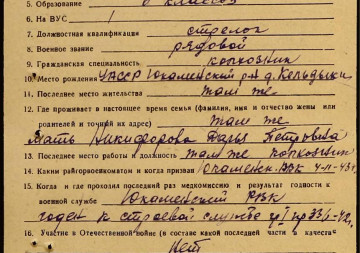 5. Образование 6 классов
6. На ВУС
7. Должностная квалификация стрелок
8. Военное звание рядовой
9. Гражданская специальность колхозник
10. Место рождения УАССР Юкаменский р-н д. Кельдыки
11. Последнее место жительства там же
12. Где проживает в настоящее время семья (фамилия, имя и отчество жены или
родителей и точный их адрес) там же
Мать Никифорова Дарья Петровна
13. Последнее место работы и должность там же колхозник
14. Каким райгорвоенкоматом и когда призван Юкаменск. РВК 4-II-43г.
15. Когда и где проходил последний раз медкомиссию и результат годности к
военной службе Юкаменский РВК
годен к строевой службе
16. Участие в Отечественной войне (в составе какой последней части в качестве
Нет